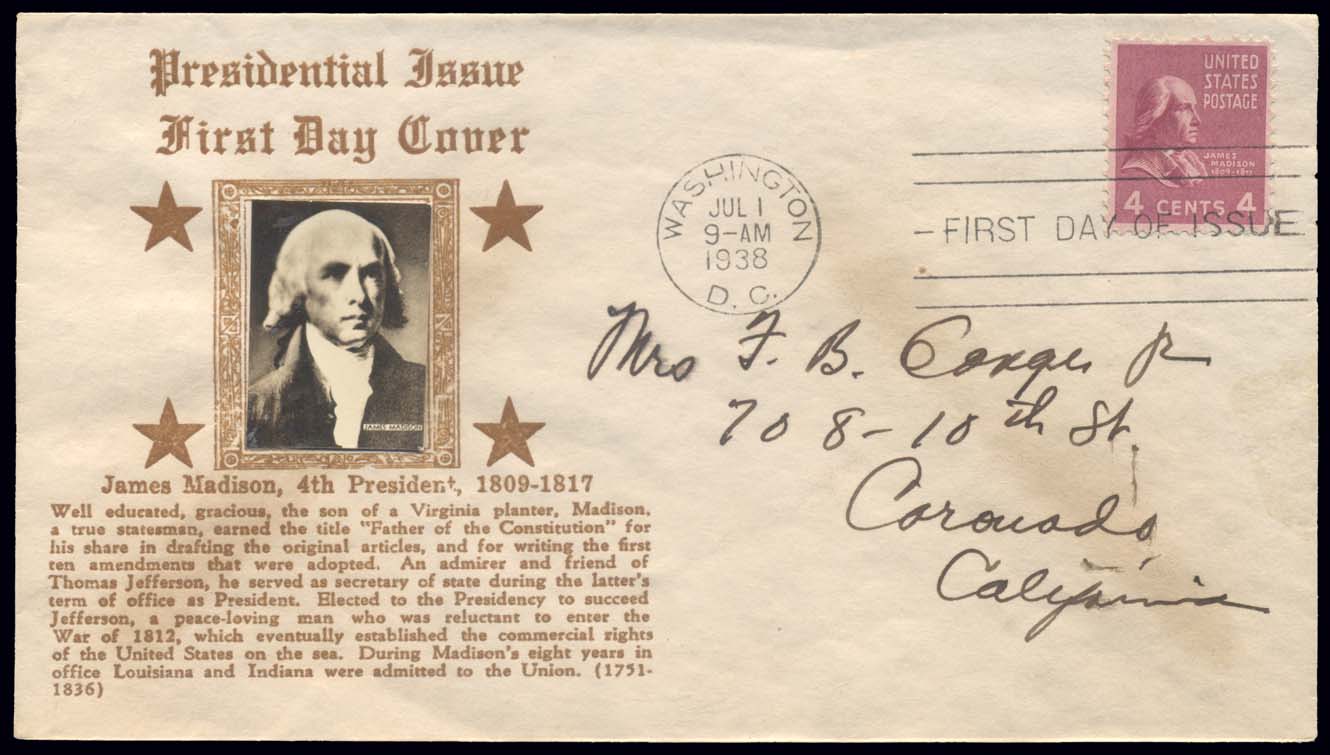 Presidential Issue
First Day Cover
JAMES MADISON
James Madison, 4th President, 1809-1817
Well educated, gracious, the son of a Virginia planter, Madison,
a true statesman, earned the title "Father of the Constitution" for
his share in drafting the original articles, and for writing the first
ten amendments that were adopted. An admirer and friend of
Thomas Jefferson, he served as secretary of state during the latter's
term of office as President. Elected to the Presidency to succeed
Jefferson, a peace-loving man who was reluctant to enter the
War of 1812, which eventually established the commercial rights
of the United States on the sea. During Madison's eight years in
office Louisiana and Indiana were admitted to the Union. (1751-
1836)
WASHINGTON
JUL 1
9-AM
1938
D. C.
UNITED
STATES
POSTAGE
JAMES
MADISON
1809-1817
4 CENTS 4
FIRST DAY OF ISSUE
Mrs F. B. Conger Jr
708-10th St.
Coronado
California